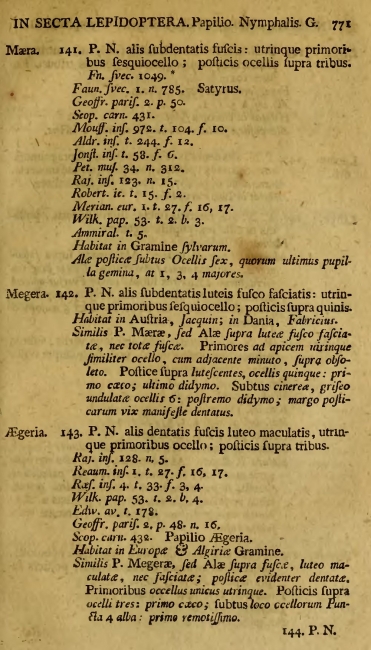 IN SECTA LEPIDOPTERA. Papilio. Nymphalis. G. 771
Mæra. 141. P. N. alis ſubdentatis fuſcis: utrinque primori-
bus ſesquiocello; poſticis ocellis ſupra tribus.
Fn. ſvec. 1049. *
Faun. ſvec. 1. n. 785. Satyrus.
Geoffr. pariſ. 2. p. 50.
Scop. carn. 431.
Mouff. inſ. 972. t. 104. f. 10.
Aldr. inſ. t. 244. f. 12.
Jonſt. inſ. t. 58. f. 6.
Pet. muſ. 34. n. 312.
Raj. inſ. 123. n. 15.
Robert. ic. t. 15. f. 2.
Merian. eur. 1. t. 27. f. 16, 17.
Wilk. pap. 53. t. 2. b. 3.
Ammiral. t. 5.
Habitat in Gramine ſylvarum.
Alæ poſticæ ſubtus Ocellis ſex, quorum ultimus pupil-
la gemina, at 1, 3, 4 majores.
Megera. 142. P. N. alis ſubdentatis luteis fuſco faſciatis: utrin-
que primoribus ſeſquiocello; poſticis ſupra quinis.
Habitat in Auſtria, Jacquin; in Dania, Fabricius.
Similis P. Mæræ, ſed Alæ ſupra luteæ fuſco faſcia-
tæ, nec totæ fuſcæ. Primores ad apicem utrinque
ſimiliter ocello, cum adjacente minuto, ſupra obſo-
leto. Poſtice ſupra luteſcentes, ocellis quinque: pri-
mo cæco; ultimo didymo. Subtus cinereæ, griſeo
undulatæ ocellis 6: poſtremo didymo; margo poſti-
carum vix manifeſte dentatus.
Ægeria. 143. P. N. alis dentatis fuſcis luteo maculatis, utrin-
que primoribus ocello; poſticis ſupra tribus.
Raj. inſ. 128. n. 5.
Reaum. inſ. 1. t. 27. f. 16, 17.
Rœſ. inſ. 4. t. 33. f. 3, 4.
Wilk. pap. 53. t. 2. b. 4.
Edw. av. t. 178.
Geoffr. pariſ. 2. p. 48. n. 16.
Scop. carn. 432. Papilio Ægeria.
Habitat in Europæ & Algiriæ Gramine.
Similis P. Megeræ, ſed Alæ ſupra fuſcæ, luteo ma-
culatæ, nec faſciatæ; poſticæ evidenter dentatæ.
Primoribus occellus unicus utrinque. Poſticis ſupra
ocelli tres: primo cæco; ſubtus loco ocellorum Pun-
cta 4 alba: primo remotiſſimo.
144. P. N.